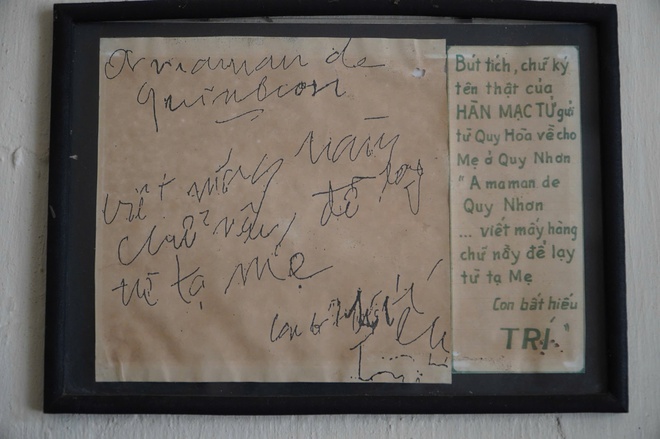 A maman de
Quinhon
viết mấy hàng
chữ nầy để lạy
từ tạ mẹ
Con bất hiếu
Trí
Bút tích, chữ ký
tên thật của
HÀN MẠC TỬ gửi
từ Quy Hòa về cho
Mẹ ở Quy Nhơn
"A maman de
Quy Nhơn
... viết mấy hàng
chữ nầy để lạy
từ tạ Mẹ
Con bất hiếu
TRÍ."